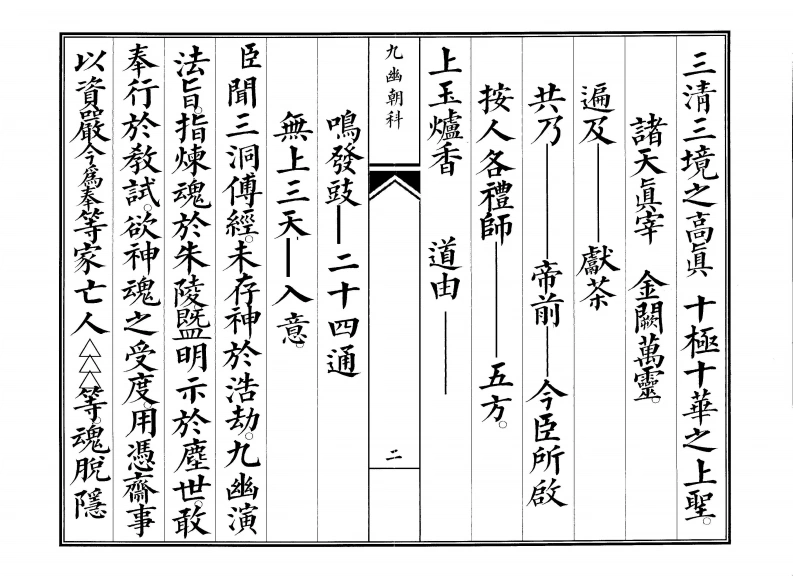 三清三境之高眞　十極十華之上聖。
諸天眞宰　金闕萬靈。
遍及——獻茶
共乃——帝前——今臣所啟
按人各禮師——五方。
上玉爐香　道由——
九幽朝科　二
鳴發鼓——二十四通
無上三天——入意。
臣聞三洞傅經。未存神於浩劫。九幽演
法旨。指煉魂於朱陵。曁明示於塵世。敢
奉行於教試。欲神魂之受度。用憑齋事
以資嚴今爲奉等家亡人△△△等。魂脫隱